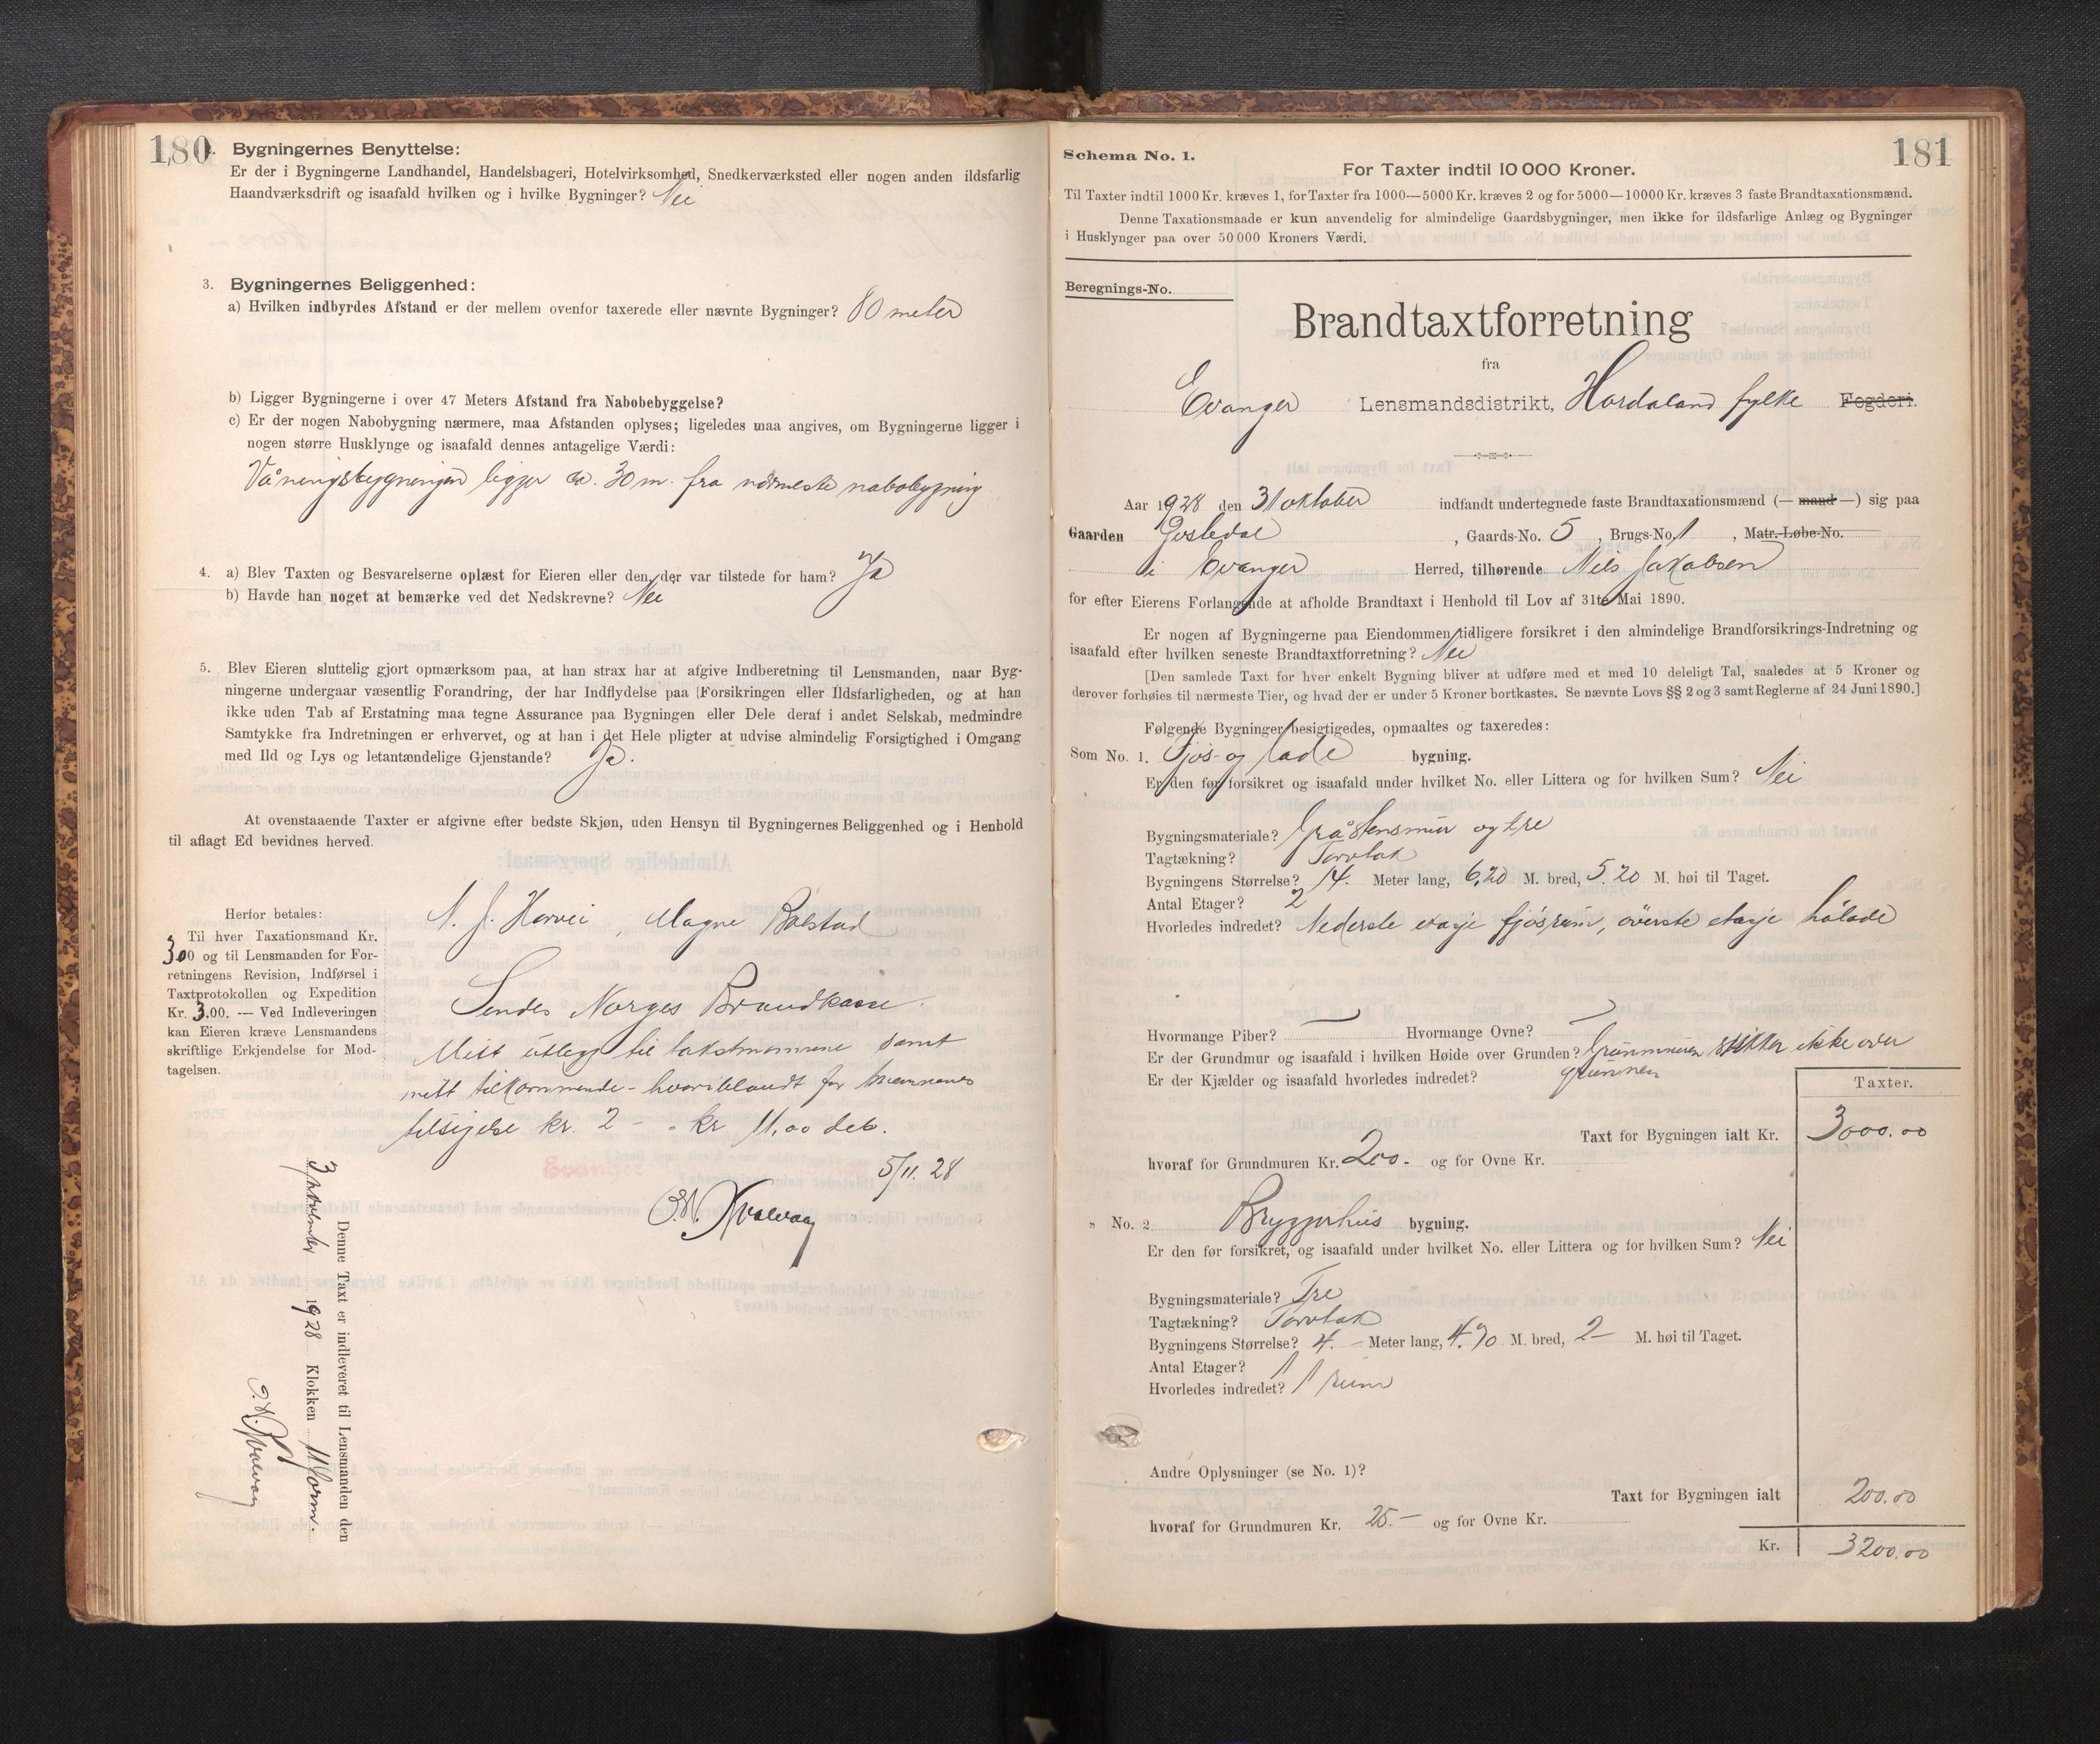 180.
Bygningernes Benyttelse:
Er der i Bygningerne Landhandel, Handelsbageri, Hotelvirksomhed, Snedkerværksted eller nogen anden ildsfarlig
Haandværksdrift og isaafald hvilken og i hvilke Bygninger? Nei
3. Bygningernes Beliggenhed:
a) Hvilken indbyrdes Afstand er der mellem ovenfor taxerede eller nævnte Bygninger? 80 meter
b) Ligger Bygningerne i over 47 Meters Afstand fra Nabobebyggelse?
c) Er der nogen Nabobygning nærmere, maa Afstanden oplyses; ligeledes maa angives, om Bygningerne ligger i
nogen større Husklynge og isaafald dennes antagelige Værdi:
Våningsbygningen ligger ca. 30 m. fra nærmeste nabobygning
4. a) Blev Taxten og Besvarelserne oplæst for Eieren eller den, der var tilstede for ham? Ja
b) Havde han noget at bemærke ved det Nedskrevne? Nei
5. Blev Eieren sluttelig gjort opmærksom paa, at han strax har at afgive Indberetning til Lensmanden, naar Byg-
ningerne undergaar væsentlig Forandring, der har Indflydelse paa Forsikringen eller Ildsfarligheden, og at han
ikke uden Tab af Erstatning maa tegne Assurance paa Bygningen eller Dele deraf i andet Selskab, medmindre
Samtykke fra Indretningen er erhvervet, og at han i det Hele pligter at udvise almindelig Forsigtighed i Omgang
med Ild og Lys og letantændelige Gjenstande? Ja.
At ovenstaaende Taxter er afgivne efter bedste Skjøn, uden Hensyn til Bygningernes Beliggenhed og i Henhold
til aflagt Ed bevidnes herved.
N. J. Horvei, Magne Bolstad
Herfor betales:
Til hver Taxationsmand Kr.
3.00 og til Lensmanden for For-
retningens Revision, Indførsel i
Taxtprotokollen og Expedition
Kr. 3.00. — Ved Indleveringen
kan Eieren kræve Lensmandens
skriftlige Erkjendelse for Mod-
tagelsen.
Sendes Norges Brandkasse.
Mitt utlegg til takstmennene samt
mitt tilkommende - hvoriblandt for mennenes
tilsigelse kr. 2 - - kr 11,00 deb.
5/11. 28
O. N. Kvalvaag
Denne Taxt er indleveret til Lensmanden den
3 november 1928 Klokken 11 form.
O. N. Kvalvaag
Evanger
181
Schema No. 1.
For Taxter indtil 10 000 Kroner.
Til Taxter indtil 1000 Kr. kræves 1, for Taxter fra 1000—5000 Kr. kræves 2 og for 5000—10000 Kr. kræves 3 faste Brandtaxationsmænd.
Denne Taxationsmaade er kun anvendelig for almindelige Gaardsbygninger, men ikke for ildsfarlige Anlæg og Bygninger
i Husklynger paa over 50 000 Kroners Værdi.
Beregnings-No.
Brandtaxtforretning
fra
Evanger Lensmandsdistrikt, Hordaland fylke Fogderi.
Aar 1928 den 31 oktober indfandt undertegnede faste Brandtaxationsmænd (— mand —) sig paa
Gaarden , Gaards-No. 5, Brugs-No. 1, Matr.-Løbe-No.
i Evanger Herred, tilhørende Nils Jakobsen
for efter Eierens Forlangende at afholde Brandtaxt i Henhold til Lov af 31te Mai 1890.
Er nogen af Bygningerne paa Eiendommen tidligere forsikret i den almindelige Brandforsikrings-Indretning og
isaafald efter hvilken seneste Brandtaxtforretning? Nei
[Den samlede Taxt for hver enkelt Bygning bliver at udføre med et med 10 deleligt Tal, saaledes at 5 Kroner og
derover forhøies til nærmeste Tier, og hvad der er under 5 Kroner bortkastes. Se nævnte Lovs §§ 2 og 3 samt Reglerne af 24 Juni 1890.]
Følgende Bygninger besigtigedes, opmaaltes og taxeredes:
Som No. 1. Fjøs- og lade bygning.
Er den før forsikret og isaafald under hvilket No. eller Littera og for hvilken Sum? Nei
Bygningsmateriale? Gråstensmur og tre
Tagtækning? Torvtak
Bygningens Størrelse? 14. Meter lang, 6,20 M. bred, 5.20 M. høi til Taget.
Antal Etager? 2
Hvorledes indredet? Nederste etasje fjøsrum, överste etasje hölade
Hvormange Piber? — Hvormange Ovne? —
Er der Grundmur og isaafald i hvilken Høide over Grunden? Grunmuren stikker ikke over
Er der Kjælder og isaafald hvorledes indredet? grunnen
Taxter.
Taxt for Bygningen ialt Kr. 3000.00
hvoraf for Grundmuren Kr. 200.- og for Ovne Kr.
" No. 2 Bryggerhus bygning.
Er den før forsikret, og isaafald under hvilket No. eller Littera og for hvilken Sum? Nei
Bygningsmateriale? Tre
Tagtækning? Torvtak
Bygningens Størrelse? 4. - Meter lang, 4.70 M. bred, 2 - M. høi til Taget.
Antal Etager? 1
Hvorledes indredet? 1 rum
Andre Oplysninger (se No. 1)?
Taxt for Bygningen ialt 200.00
hvoraf for Grundmuren Kr. 25.- og for Ovne Kr.
Kr. 3200.00